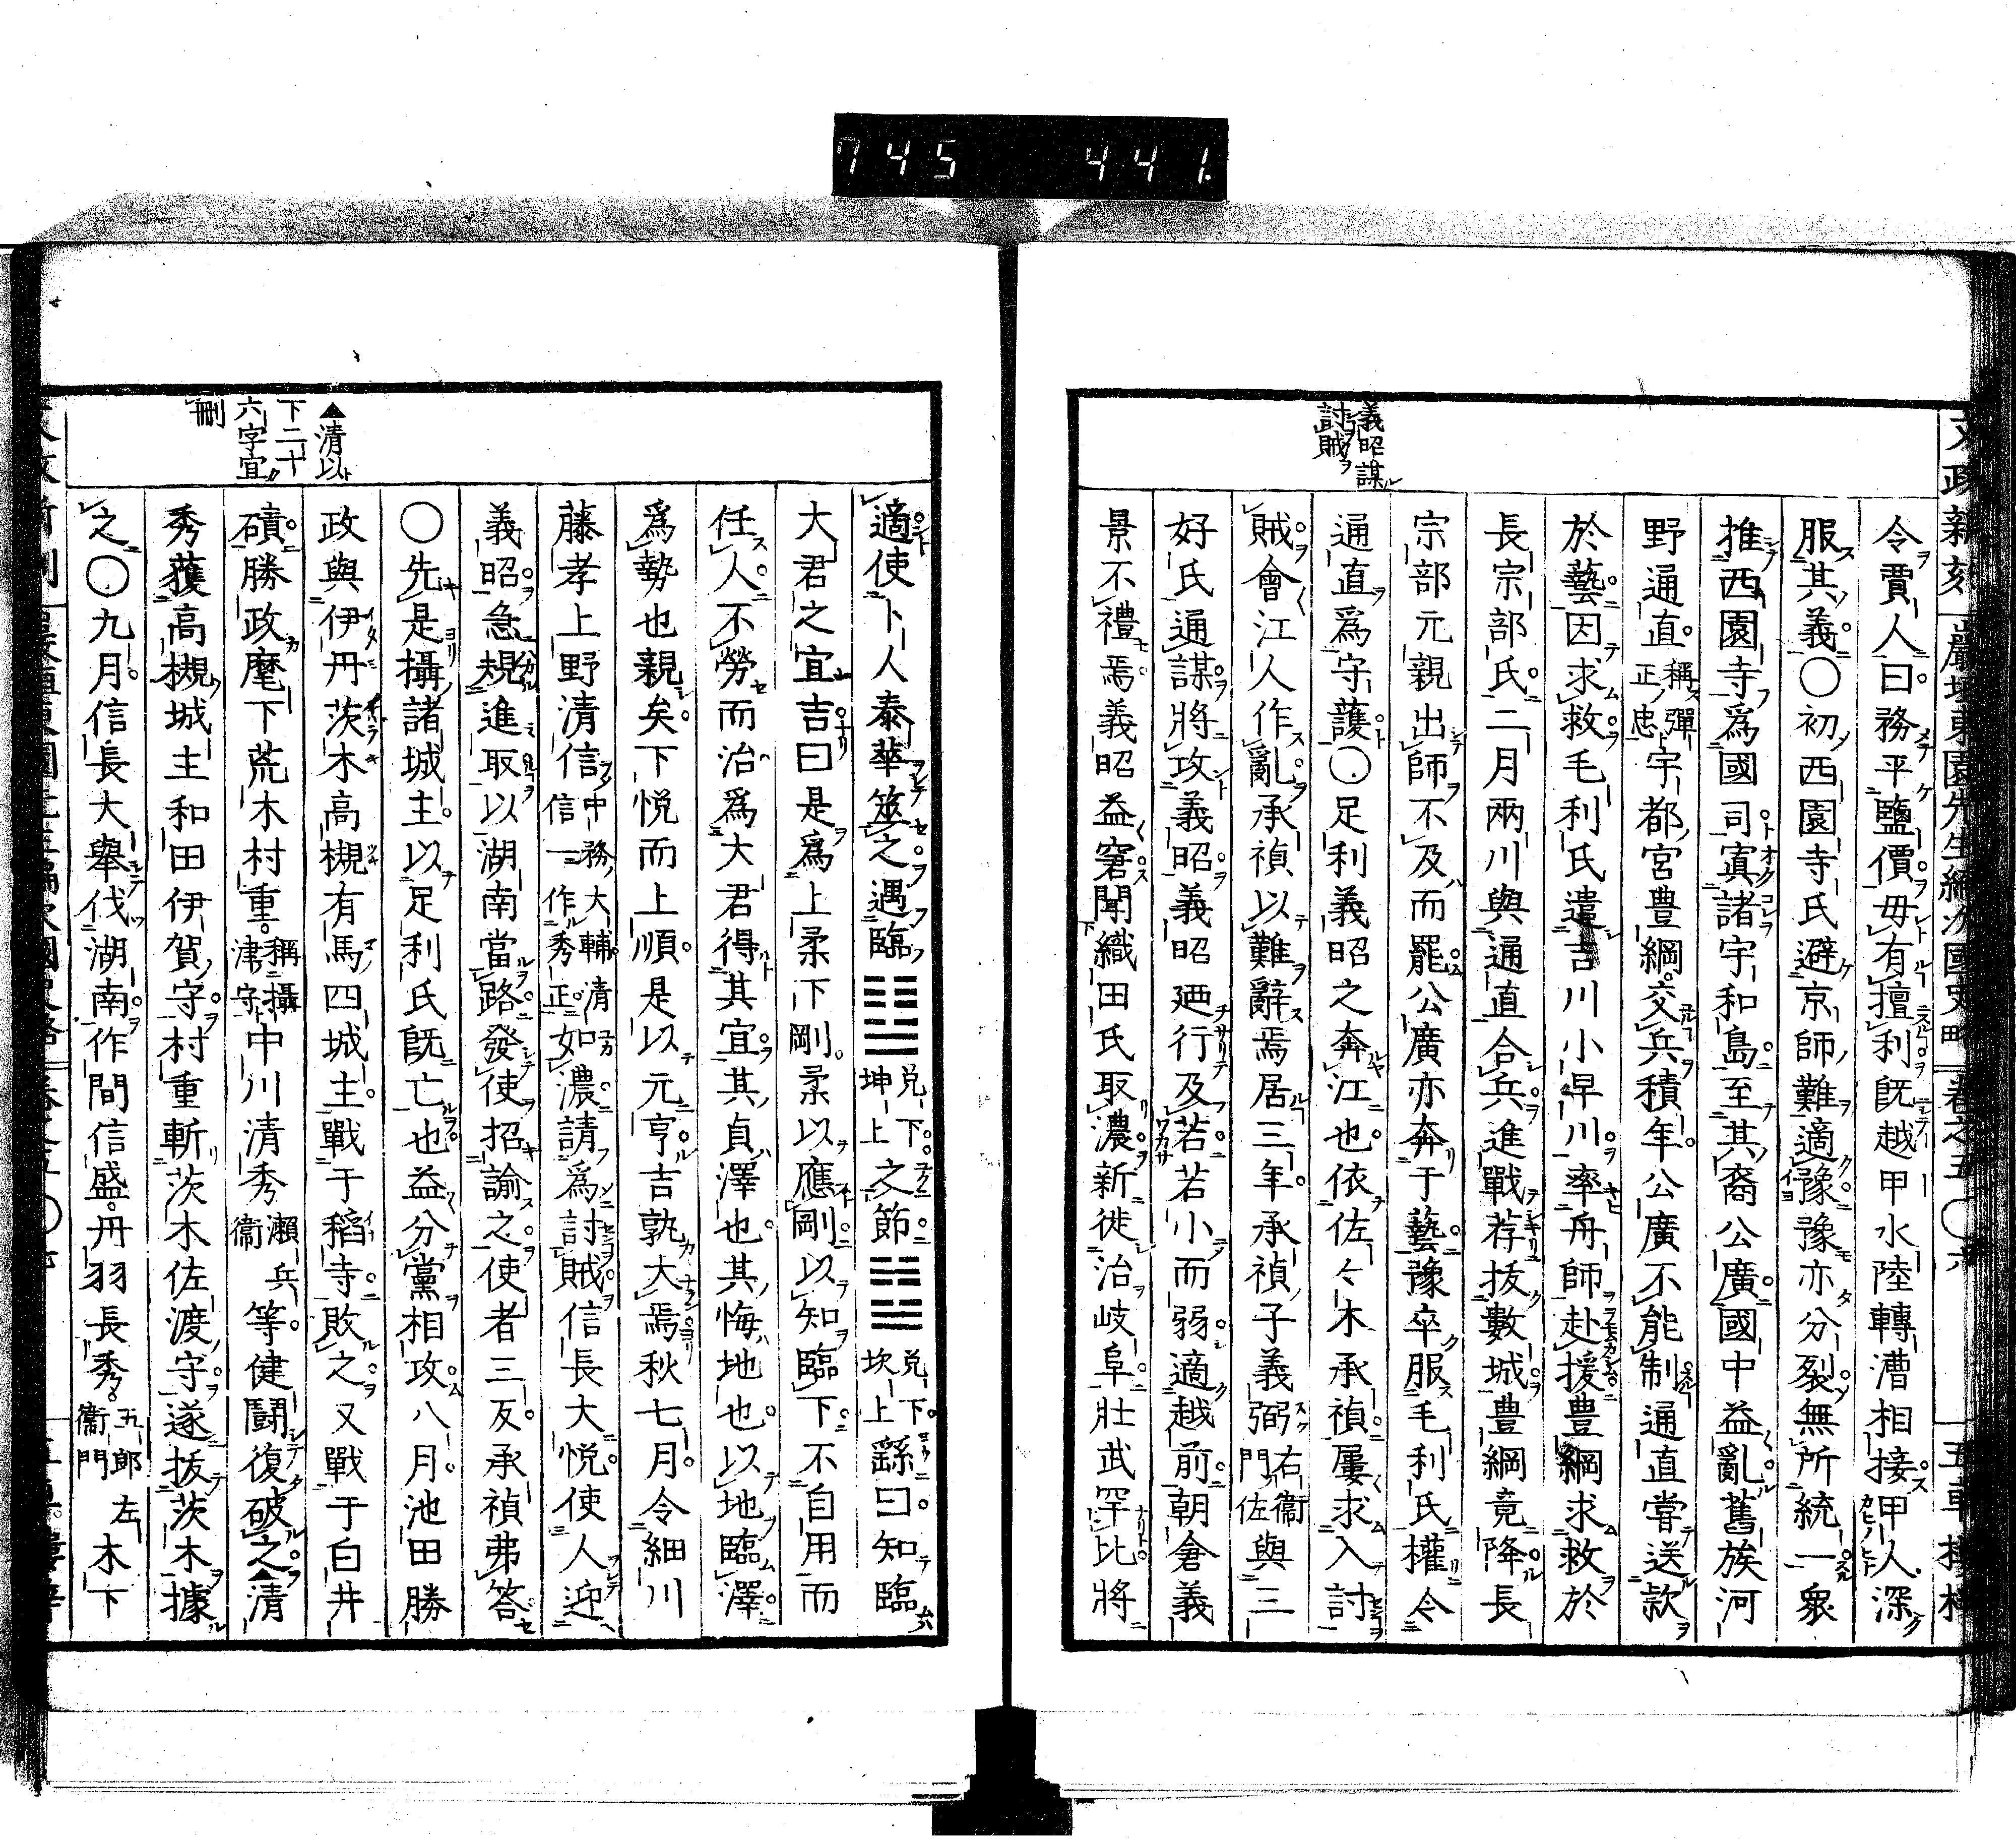 745 441.
義昭謀
討賊
令賈人曰務平鹽價毋有擅利既越甲水陸轉漕相接甲人深
服其義〇初西園寺氏避京師難適豫豫亦分裂無所統一衆
推西園寺爲國司寘諸宇和島至其裔公廣國中益亂舊族河
野通直稱彈正忠宇都宮豊綱交兵積年公廣不能制通直嘗送款
於藝因求救毛利氏遣吉川小早川率舟師赴援豊綱求救於
長宗部氏二月兩川與通直合兵進戰荐拔數城豊綱竟降長
宗部元親出師不及而罷公廣亦奔于藝豫卒服毛利氏權令
通直爲守護〇足利義昭之奔江也依佐々木承禎屢求入討
賊會江人作亂承禎以難辭焉居三年承禎子義弼右衞門佐與三
好氏通謀將攻義昭義昭廼行及若若小而弱適越前朝倉義
景不禮焉義昭益窘聞織田氏取濃新徙治岐阜壯武罕比將
適使卜人泰華筮之遇臨䷒兌下坤上之節䷻兌下坎上繇曰知臨
大君之宜吉曰是爲上柔下剛柔以應剛以知臨下不自用而
任人不勞而治爲大君得其宜其貞澤也其悔地也以地臨澤
爲勢也親矣下悦而上順是以元亨吉孰大焉秋七月令細川
藤孝上野清信中務大輔清信一作秀正如濃請爲討賊信長大悦使人迎
義昭急規進取以湖南當路發使招諭之使者三反承禎弗答
〇先是攝諸城主以足利氏既亡也益分黨相攻八月池田勝
政與伊丹茨木高槻有馬四城主戰于稻寺敗之又戰于白井
磧勝政麾下荒木村重稱攝津守中川清秀瀨兵衞等健鬪復破之▲清
秀獲高槻城主和田伊賀守村重斬茨木佐渡守遂拔茨木據
之〇九月信長大舉伐湖南作間信盛丹羽長秀五郎左衞門木下
▲清以
下二十
六字宜
刪